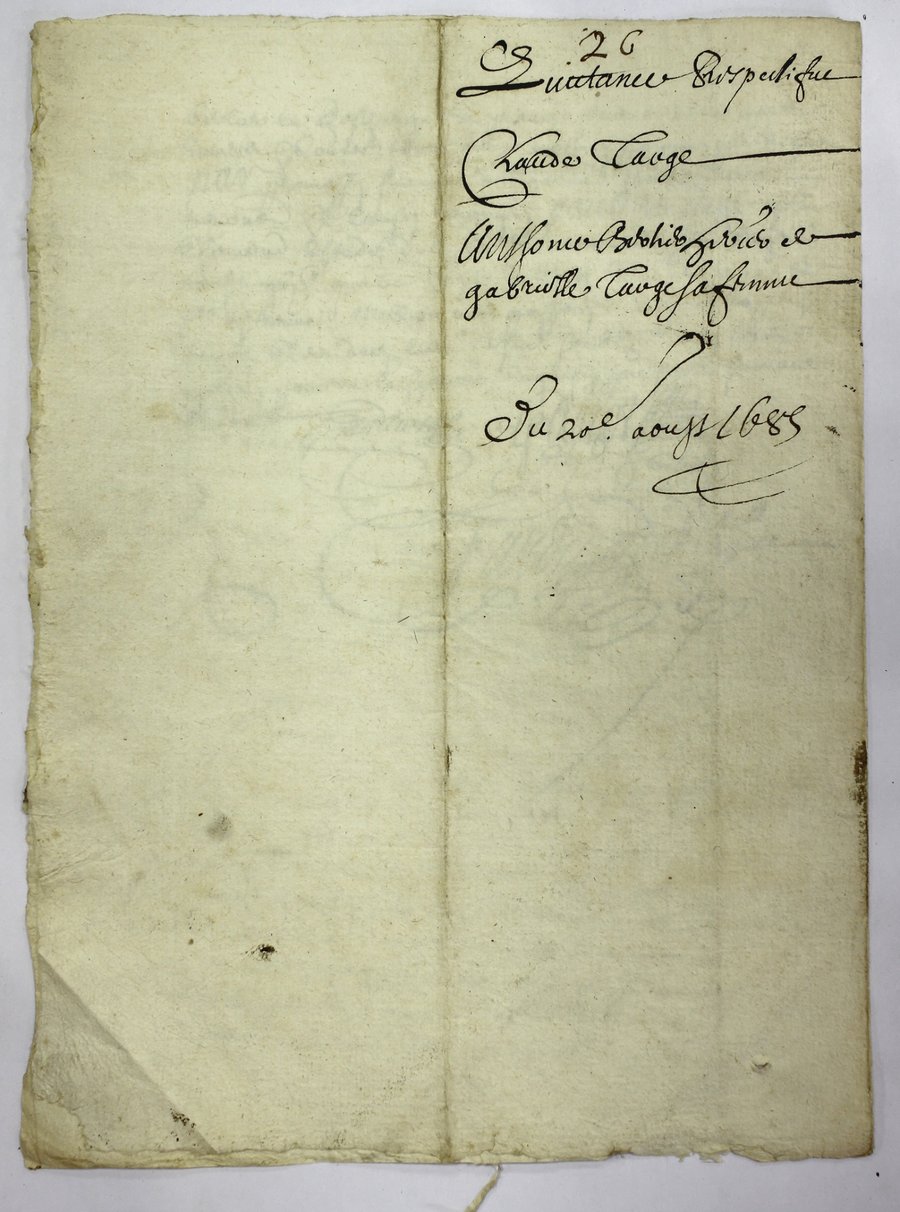 26
Quictance Respectifue
Claude Lauge
Anthoine
gabrielle Lauge sa femme
Du 20e. aoust 1685